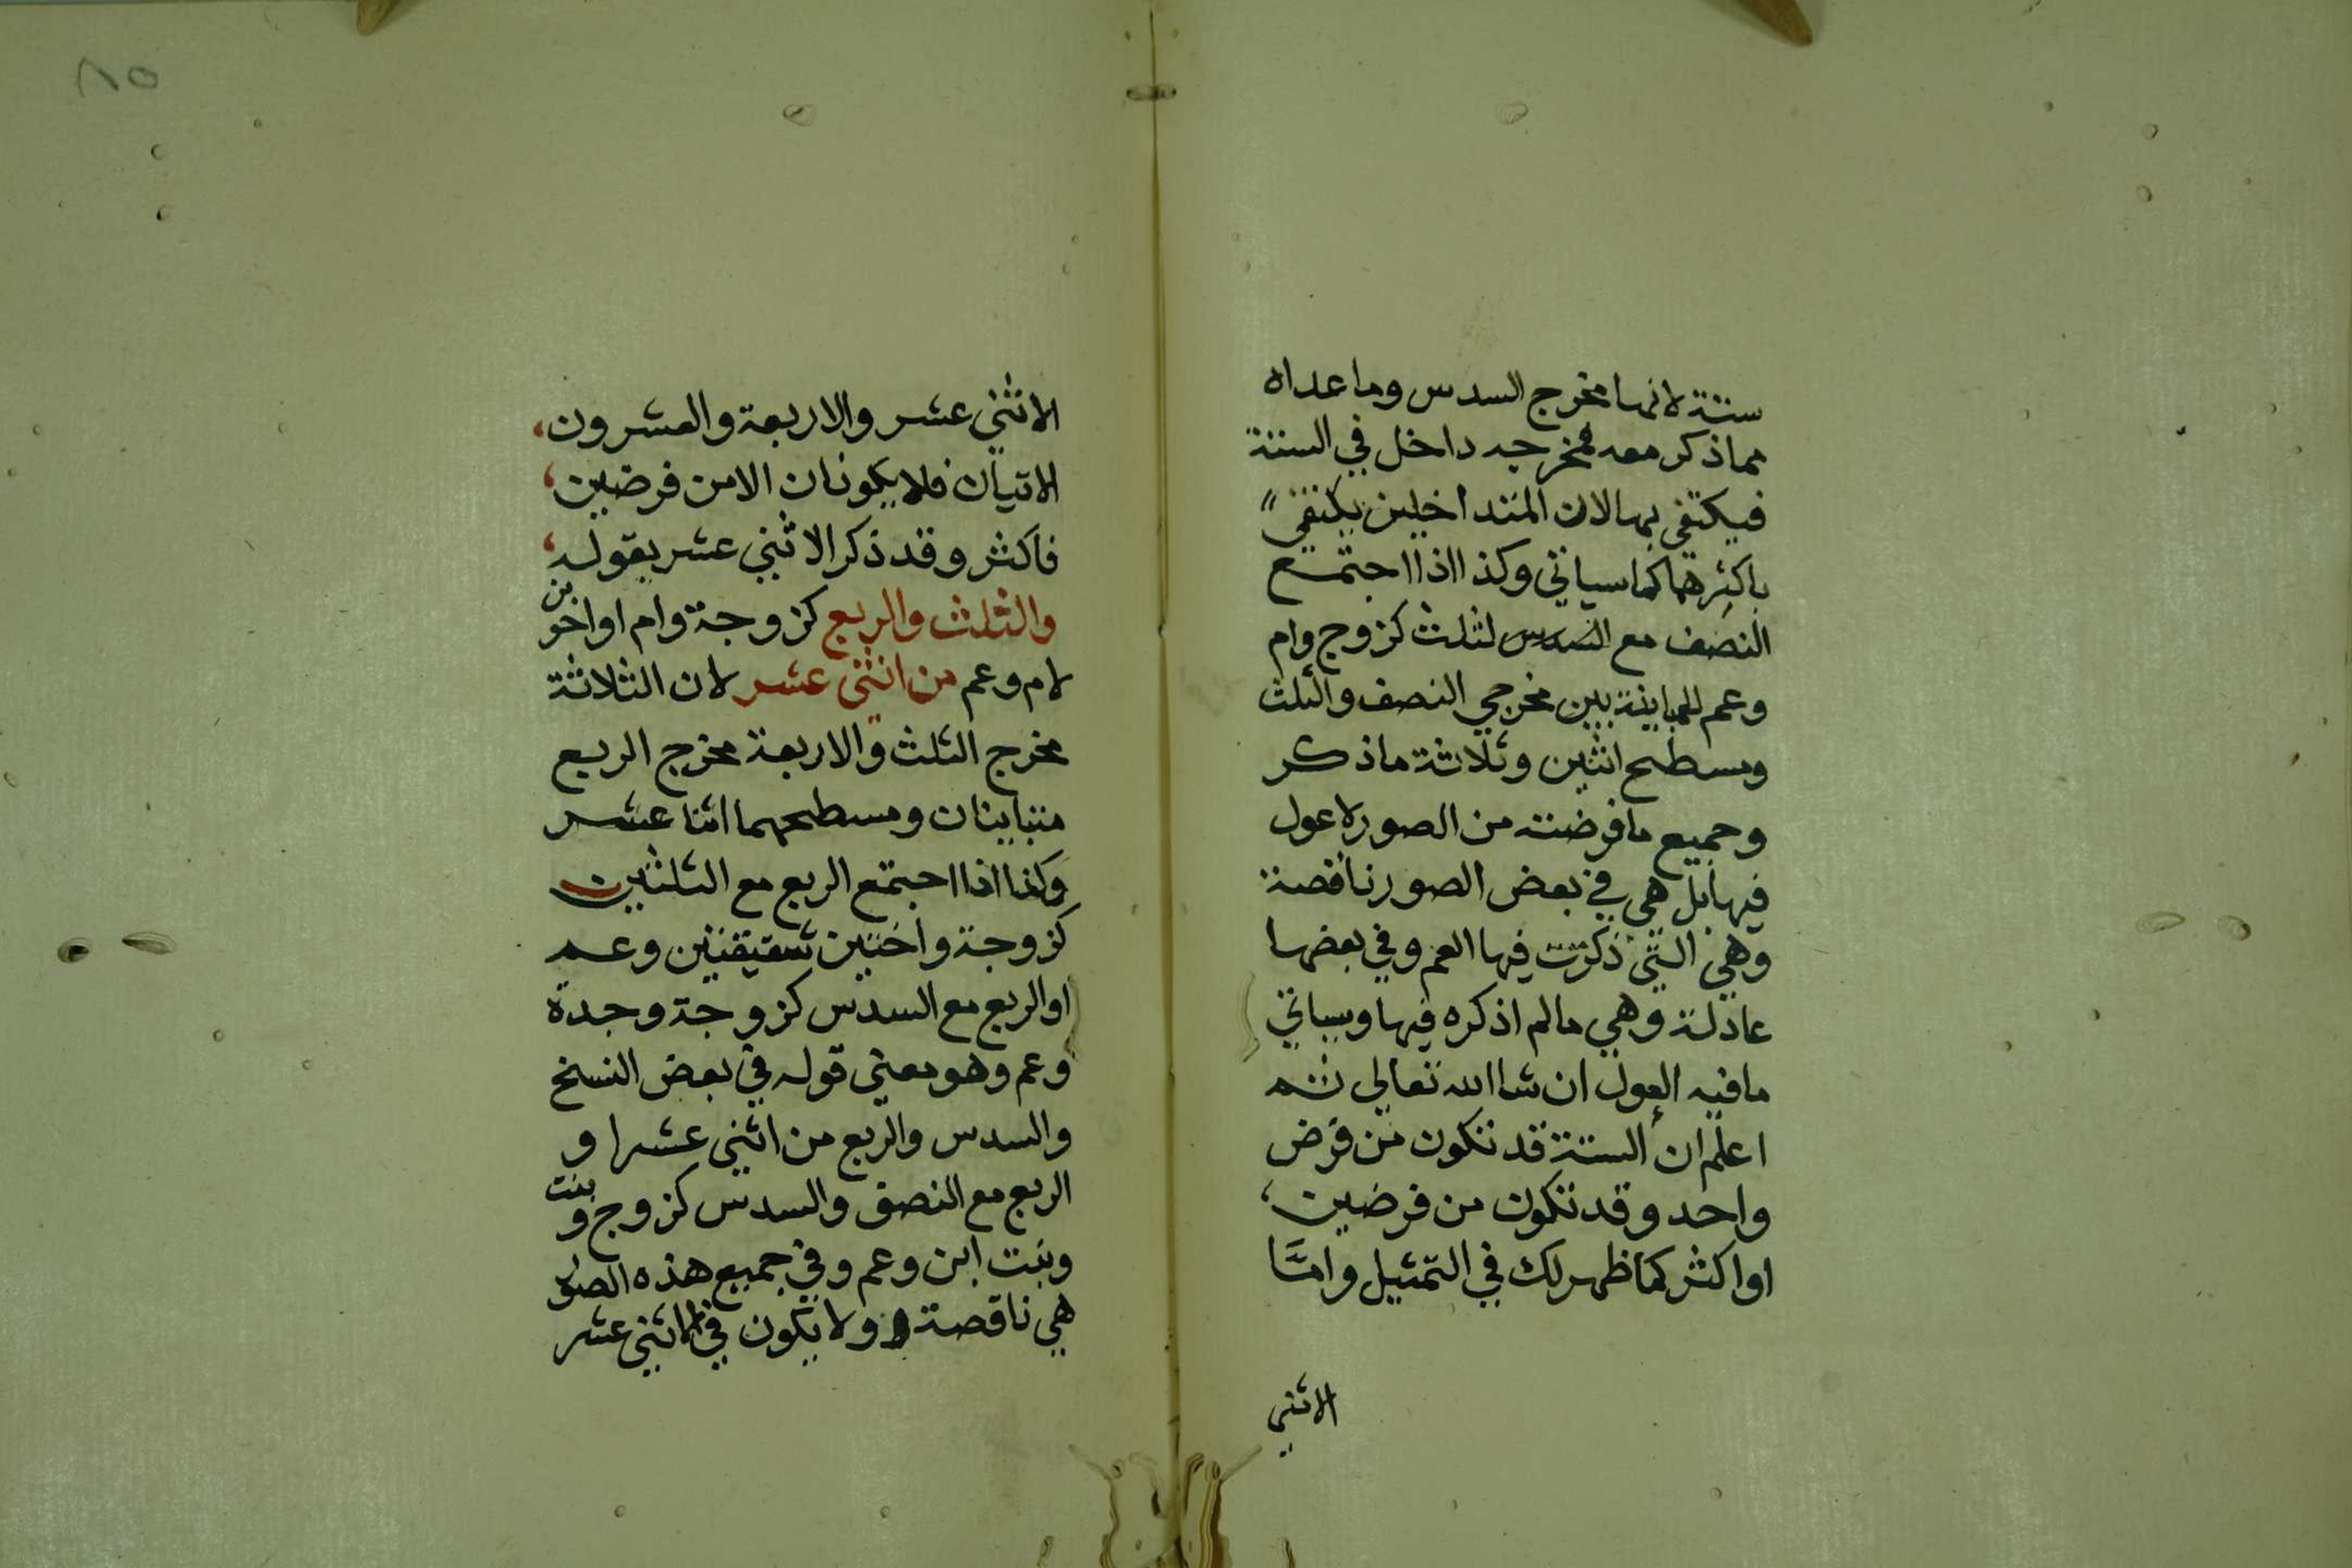 ستة لانها مخرج السدس وما عداه
مما ذكر معه فمخرجه داخل في الستة
فيكتفي بها لان المتداخلين يكتفي
باكثرهما كما سياتي وكذا اذا اجتمع
النصف مع الثلث كزوج وام
وعم للمباينة بين مخرجي النصف والثلث
ومسطح اثنين وثلاثة ماذكر
وجميع ما فرضته من الصور لا عول
فيها بل هي في بعض الصور ناقصة
وهي التي ذكرت فيها العم وفي بعضها
عادلة وهي مالم اذكره فيها وسياتي
ما فيه العول ان شا الله تعالي ثم
اعلم ان الستة قد تكون من فرض
واحد وقد تكون من فرضين
او اكثر كما ظهر لك في التمثيل وامَّا
الاثني
٨٥
الاثني عشر والاربعة والعشرون
الاتيان فلا يكونان الا من فرضين
فاكثر وقد ذكر الاثني عشر بقوله
والثلث والربع كزوجة وام او اخوين
لام وعم من اثني عشر لان الثلاثة
مخرج الثلث والاربعة مخرج الربع
متباينان ومسطحهما اثنا عشر
وكذا اذا اجتمع الربع مع الثلثين
كزوجة واختين شقيقتين وعم
او الربع مع السدس كزوجة وجدة
وعم وهو معني قوله في بعض النسخ
والسدس والربع من اثني عشر او
الربع مع النصف والسدس كزوج وبنت
وبنت ابن وعم وفي جميع هذه الصور
هي ناقصة ولا يكون في الاثني عشر